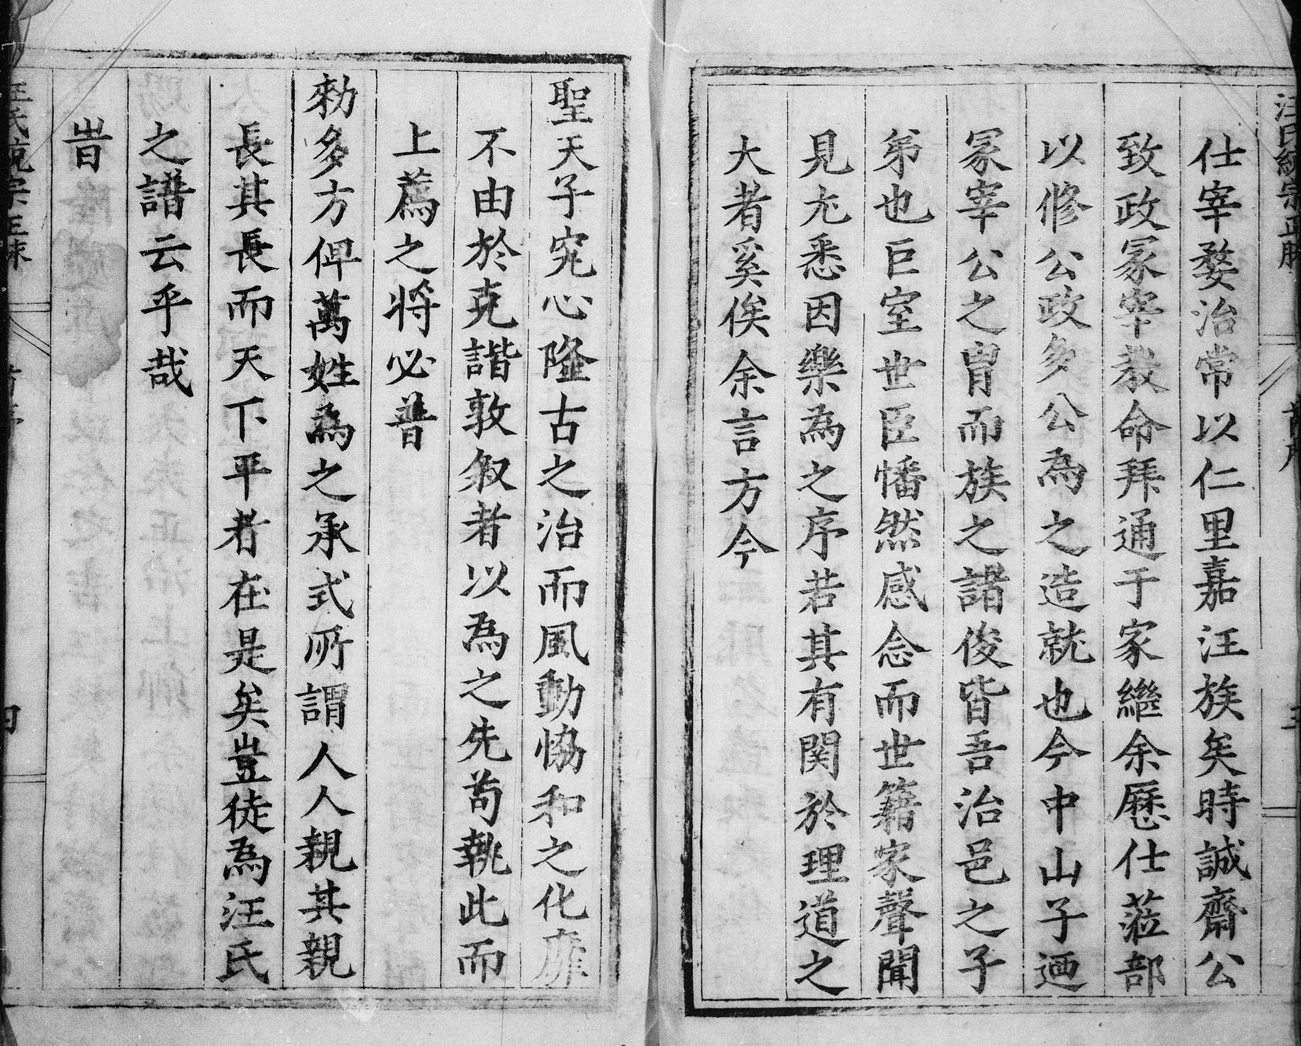 仕宰婺治常以仁里嘉汪族矣時誠齋公
致政冢宰教命拜通于家繼余歷仕蒞部
以修公政多公為之造就也今中山子迺
冢宰公之胄而族之諸俊皆吾治邑之子
弟也巨室世臣幡然感念而世籍家聲聞
見尤悉因樂為之序若其有関於理道之
大者奚俟余言方今
聖天子究心隆古之治而風動恊和之化靡
不由於克諧敦叙者以為之先苟執此而
上薦之将必普
勑多方俾萬姓為之承式所謂人人親其親
長其長而天下平者在是矣豈徒為汪氏
之譜云乎哉
旹